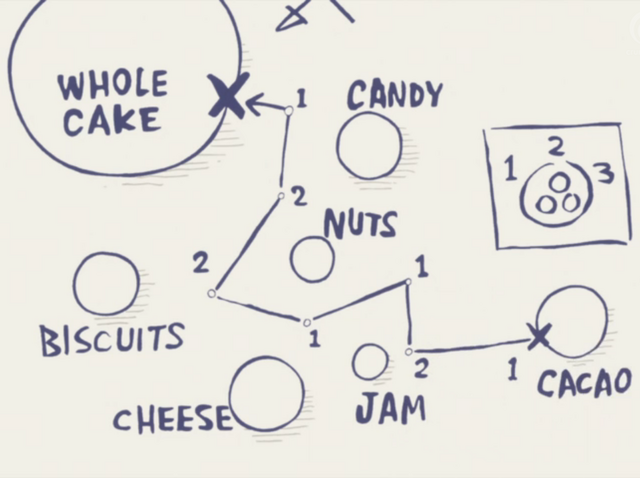 WHOLE
CAKE
1
CANDY
2
1 2 3
NUTS
2
1
1
BISCUITS
2
1
CACAO
CHEESE
JAM